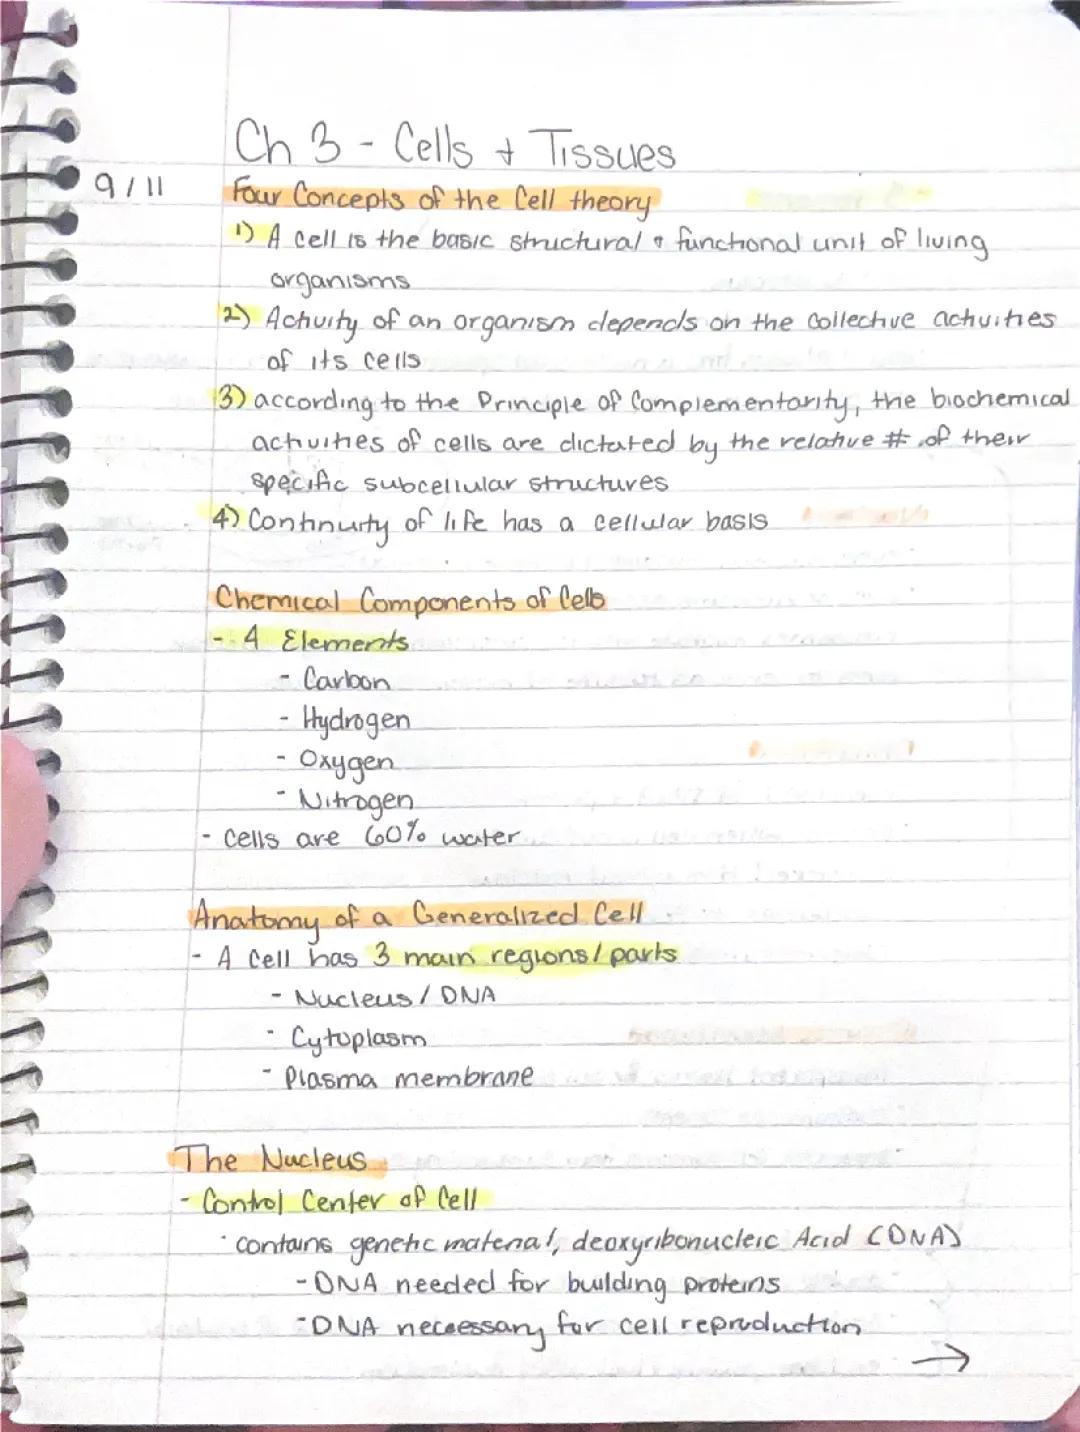 Ch 3 - Cells + Tissues
9/11
Four Concepts of the Cell theory
1) A cell is the basic structural & functional unit of living
organisms
2) Activity of an organism depends on the collective activities
of its cells
3) according to the Principle of Complementarity, the biochemical
activities of cells are dictated by the relative # of their
specific subcellular structures
4) Continuity of life has a cellular basis
Chemical Components of Cells
- 4 Elements
- Carbon
- Hydrogen
- Oxygen
- Nitrogen
- Cells are 60% water
Anatomy of a Generalized Cell
- A Cell has 3 main regions/parts
- Nucleus / DNA
- Cytoplasm
- Plasma membrane
The Nucleus
- Control Center of Cell
· contains genetic material, deoxyribonucleic Acid (DNA)
- DNA needed for building proteins
- DNA necessary for cell reproduction
→